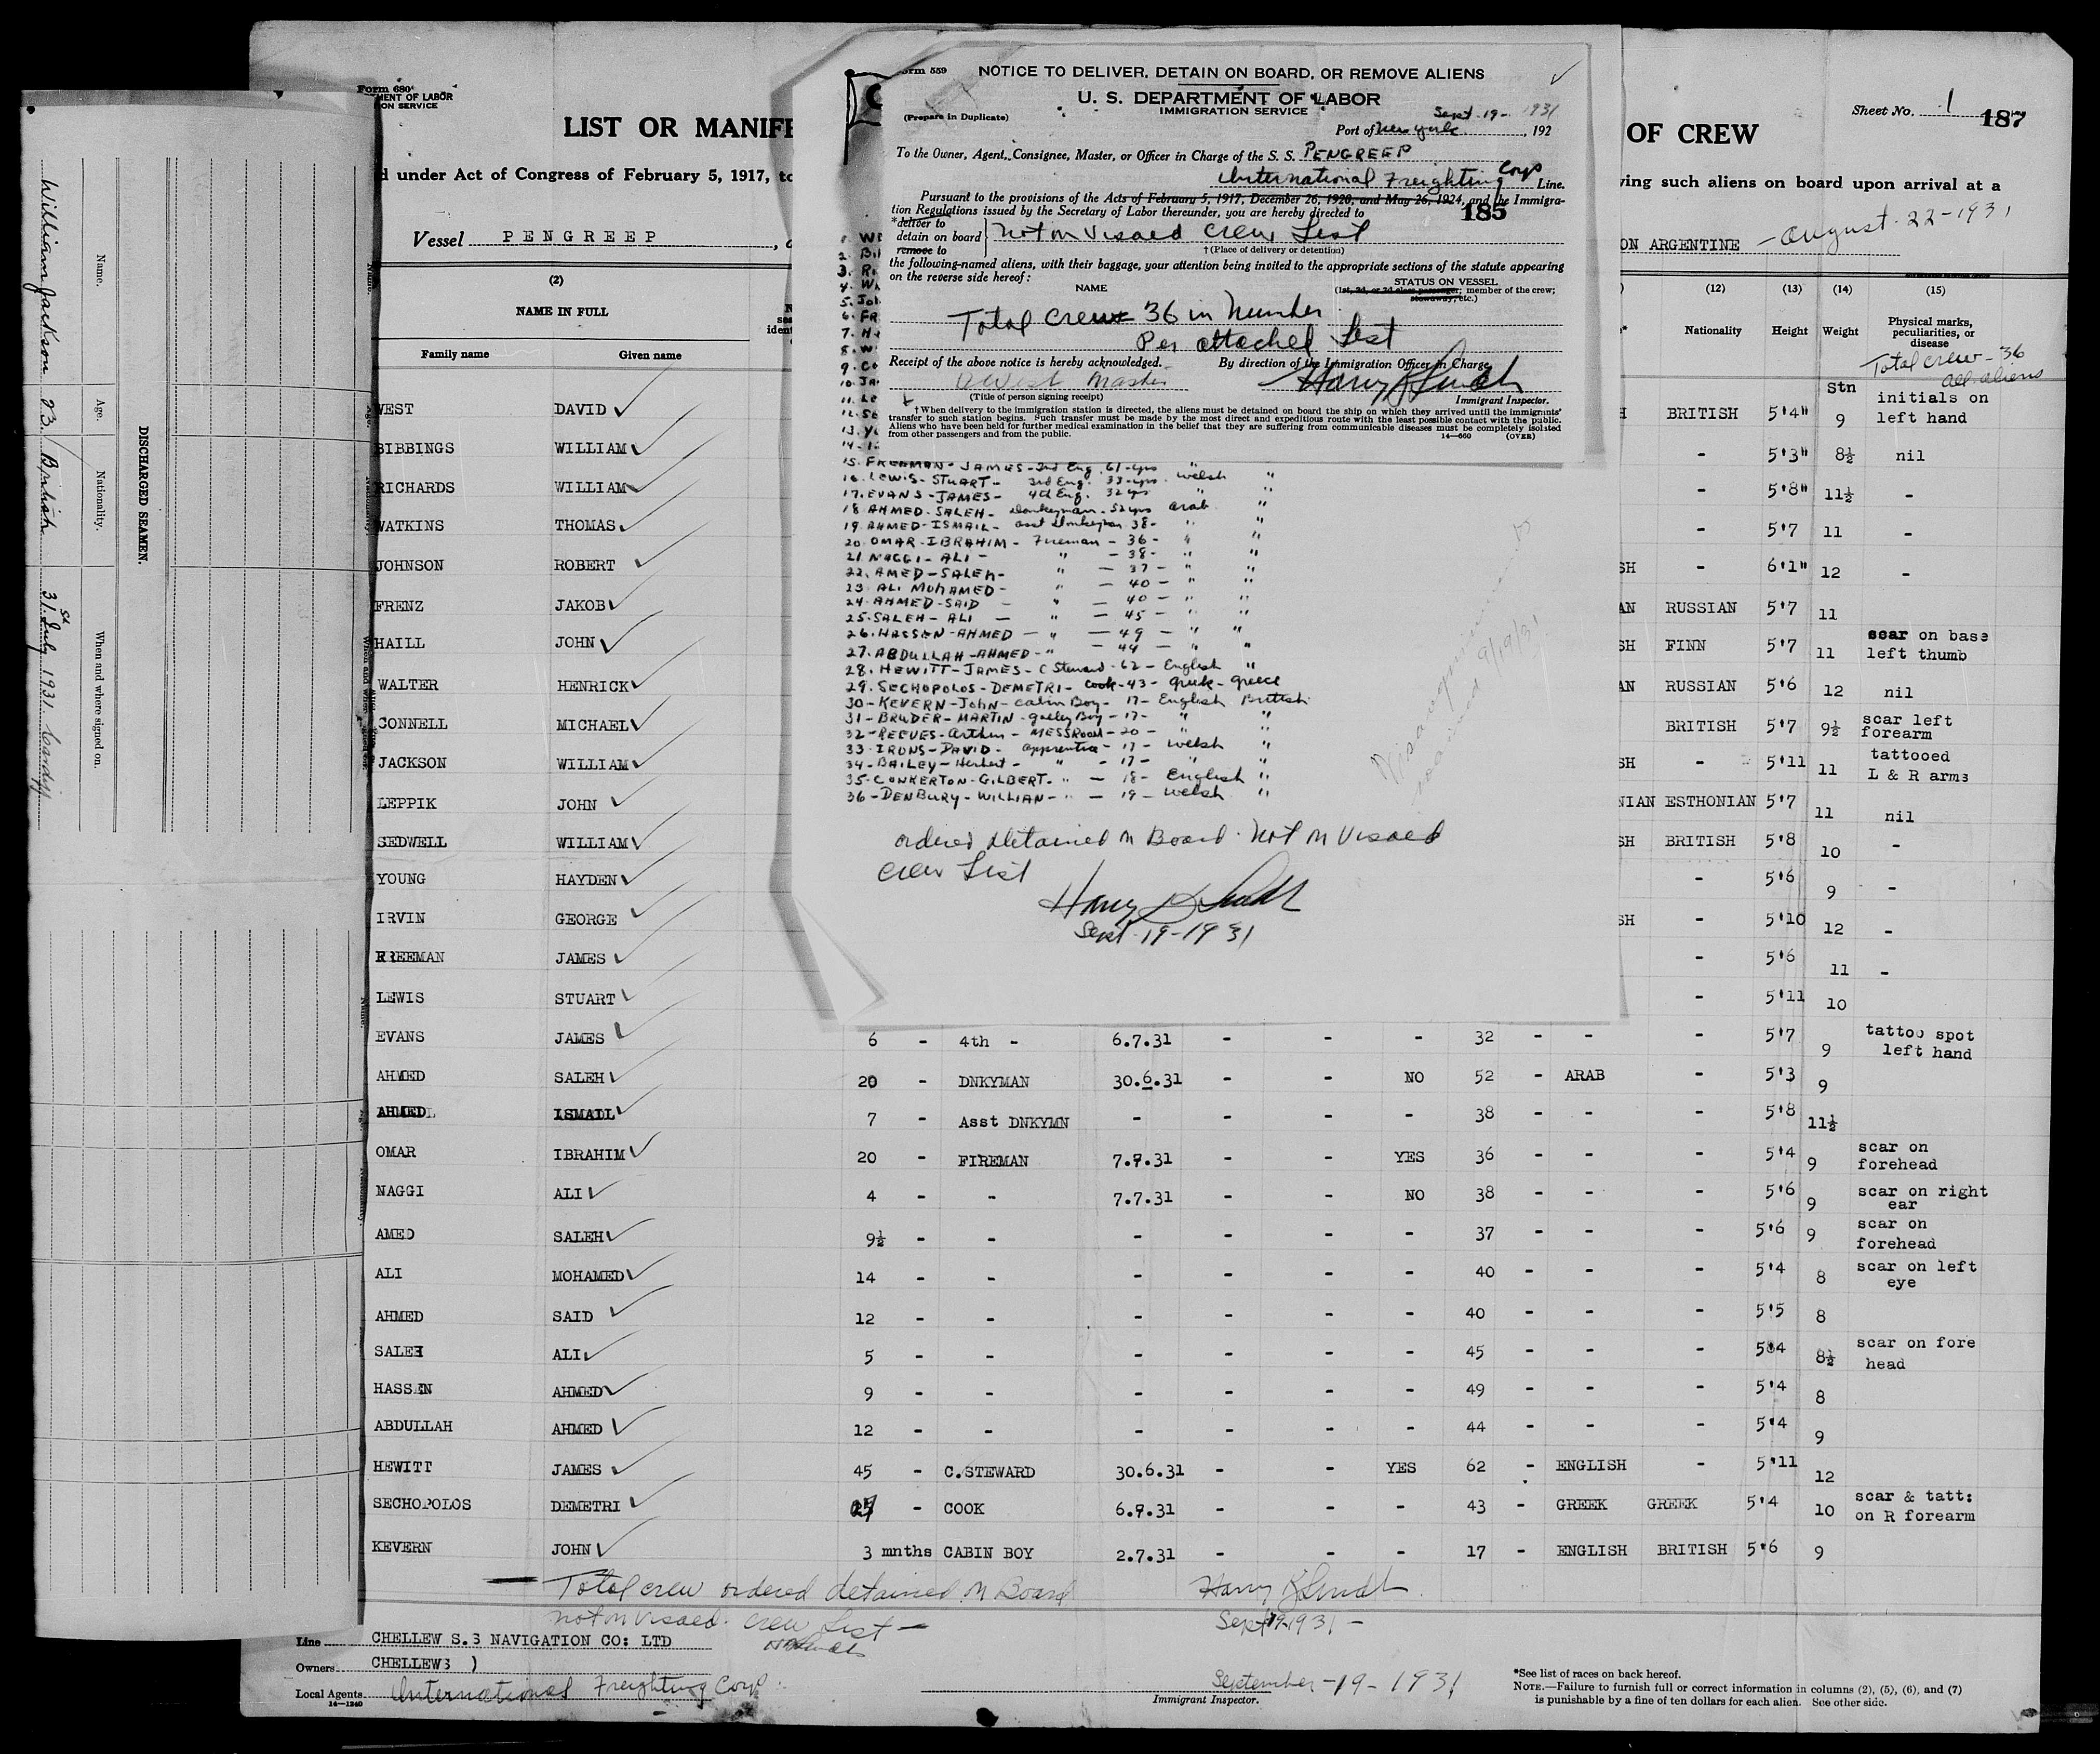 DISCHARGED SEAMEN.
Name.
Age.
Nationality.
When and where signed on.
William Jackson 23 British 31st July 1931. Cardiff
Form 680
MENT OF LABOR
ON SERVICE
LIST OR MANIFE
OF CREW
Sheet No. 1
187
d under Act of Congress of February 5, 1917, to
ving such aliens on board upon arrival at a
Vessel PENGREEP
ON ARGENTINE - August-22-1931
Form 559
NOTICE TO DELIVER, DETAIN ON BOARD, OR REMOVE ALIENS
U. S. DEPARTMENT OF LABOR
IMMIGRATION SERVICE
(Prepare in Duplicate)
Sept. 19- 1931
Port of New York, 192
To the Owner, Agent, Consignee, Master, or Officer in Charge of the S. S. PENGREEP
International Freighting Corp Line.
Pursuant to the provisions of the Acts of February 5, 1917, December 26, 1920, and May 26, 1924, and the Immigra-
tion Regulations issued by the Secretary of Labor thereunder, you are hereby directed to
185
*deliver to
detain on board
remove to
Not on Visaed Crew List
†(Place of delivery or detention)
the following-named aliens, with their baggage, your attention being invited to the appropriate sections of the statute appearing
on the reverse side hereof:
NAME
STATUS ON VESSEL
(1st, 2d, or 3d class passenger; member of the crew;
stowaway, etc.)
Total Crew 36 in Number
Per attached List
Receipt of the above notice is hereby acknowledged.
By direction of the Immigration Officer in Charge,
D West Master
(Title of person signing receipt)
Immigrant Inspector.
† When delivery to the immigration station is directed, the aliens must be detained on board the ship on which they arrived until the immigrants'
transfer to such station begins. Such transfer must be made by the most direct and expeditious route with the least possible contact with the public.
Aliens who have been held for further medical examination in the belief that they are suffering from communicable diseases must be completely isolated
from other passengers and from the public.
14-660 (OVER)
15. FREEMAN - JAMES - 2nd Eng. 61-yrs "
16. LEWIS - STUART - 3rd Eng. 33-yrs. Welsh "
17. EVANS - JAMES - 4th Eng. 32 yrs " "
18. AHMED - SALEH - Donkeyman - 52 yrs Arab "
19. AHMED - ISMAIL - asst Donkeyman 38 - " "
20. OMAR - IBRAHIM - Fireman - 36 - " "
21. NAGGI - ALI - " - 38 - " "
22. AMED - SALEH - " - 37 - " "
23. ALI MOHAMED - " - 40 - " "
24. AHMED - SAID - " - 40 - " "
25. SALEH - ALI - " - 45 - " "
26. HASSEN - AHMED - " - 49 - " "
27. ABDULLAH - AHMED - " - 44 - " "
28. HEWITT - JAMES - C Steward - 62 - English "
29. SECHOPOLOS - DEMETRI - Cook - 43 - Greek - Greece
30 - KEVERN - John - Cabin Boy - 17 - English British
31 - BRUDER - MARTIN - Galley Boy - 17 - " "
32 - REEVES - Arthur - MESSROOM - 20 - " "
33. IRONS - DAVID - apprentice - 17 - Welsh "
34 - BAILEY - Herbert - " - 17 - " "
35. CONKERTON - GILBERT - " - 18 - English "
36 - DENBURY - WILLIAN - " - 19 - Welsh "
9/19/31
ordered detained on Board. Not on Visaed
Crew List
Sept. 19-1931
(2)
NAME IN FULL
Family name Given name
(12) (13) (14) (15)
Nationality Height Weight Physical marks,
peculiarities, or
disease
Total crew - 36
all aliens
Stn
WEST DAVID BRITISH 5'4" 9 initials on
left hand
BIBBINGS WILLIAM - 5'3" 8½ nil
RICHARDS WILLIAM - 5'8" 11½ -
WATKINS THOMAS - 5'7 11 -
JOHNSON ROBERT SH - 6'1" 12 -
FRENZ JAKOB AN RUSSIAN 5'7 11
HAILL JOHN SH FINN 5'7 11 scar on base
left thumb
WALTER HENRICK AN RUSSIAN 5'6 12 nil
CONNELL MICHAEL BRITISH 5'7 9½ scar left
forearm
JACKSON WILLIAM SH - 5'11 11 tattooed
L & R arms
LEPPIK JOHN NIAN ESTHONIAN 5'7 11 nil
SEDWELL WILLIAM SH BRITISH 5'8 10 -
YOUNG HAYDEN - 5'6 9 -
IRVIN GEORGE SH - 5'10 12 -
FREEMAN JAMES - 5'6 11 -
LEWIS STUART - 5'11 10
EVANS JAMES 6 - 4th - 6.7.31 - - - 32 - - - 5'7 9 tattoo spot
left hand
AHMED SALEH 20 - DNKYMAN 30.6.31 - - NO 52 - ARAB - 5'3 9
AHMED ISMAIL 7 - Asst DNKYMN - - - - 38 - - - 5'8 11½
OMAR IBRAHIM 20 - FIREMAN 7.7.31 - - YES 36 - - - 5'4 9 scar on
forehead
NAGGI ALI 4 - - 7.7.31 - - NO 38 - - - 5'6 9 scar on right
ear
AMED SALEH 9½ - - - - - - 37 - - - 5'6 9 scar on
forehead
ALI MOHAMED 14 - - - - - - 40 - - - 5'4 8 scar on left
eye
AHMED SAID 12 - - - - - - 40 - - - 5'5 8
SALEH ALI 5 - - - - - - 45 - - - 5'4 8½ scar on fore
head
HASSEN AHMED 9 - - - - - - 49 - - - 5'4 8
ABDULLAH AHMED 12 - - - - - - 44 - - - 5'4 9
HEWITT JAMES 45 - C.STEWARD 30.6.31 - - YES 62 - ENGLISH - 5'11 12
SECHOPOLOS DEMETRI - COOK 6.7.31 - - - 43 - GREEK GREEK 5'4 10 scar & tatt:
on R forearm
KEVERN JOHN 3 mnths CABIN BOY 2.7.31 - - - 17 - ENGLISH BRITISH 5'6 9
Total crew ordered detained on Board
not on Visaed. Crew List -
Sept 19-1931 -
Line CHELLEW S.S NAVIGATION CO: LTD
Owners CHELLEWS )
Local Agents International Freighting Corp
14-1240
September-19-1931
Immigrant Inspector.
*See list of races on back hereof.
NOTE.—Failure to furnish full or correct information in columns (2), (5), (6), and (7)
is punishable by a fine of ten dollars for each alien. See other side.